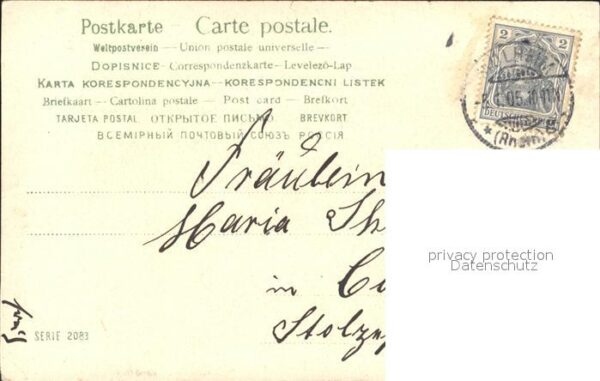 Postkarte — Carte postale.
Weltpostverein — Union postale universelle —
DOPISNICE — Correspondenzkarte — Levelező-Lap
KARTA KORESPONDENCYJNA — KORESPONDENCNI LISTEK
Briefkaart — Cartolina postale — Post card — Brefkort
TARJETA POSTAL ОТКРЫТОЕ ПИСЬМО BREVKORT
ВСЕМІРНЫЙ ПОЧТОВЫЙ СОЮЗЪ РОССІЯ
2 2
05. 11
* (Rhein)
Fräulein
Maria
in
privacy protection
Datenschutz
SERIE 2083